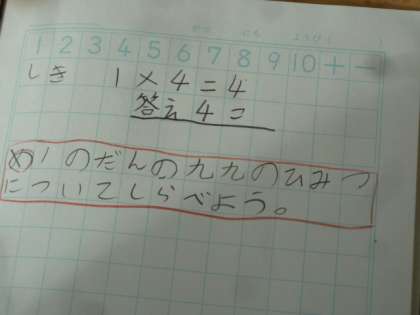 1 2 3 4 5 6 7 8 9 10 + −
しき 1×4=4
答え4こ
め 1のだんの九九のひみつ
についてしらべよう。